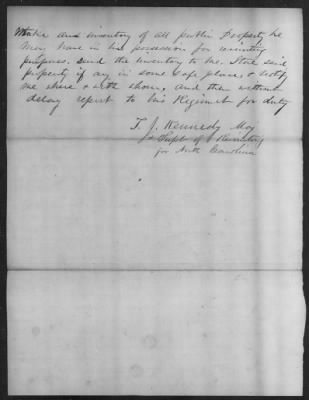 Make and inventory of all public Property he
may have in his possession for recruiting
purposes. Send the inventory to me. Store said
property if any in some safe place & notify
me where & with whom, and then without
delay report to his Regiment for duty
T. J. Kennedy Maj
& Supt of Recruiting
for North Carolina